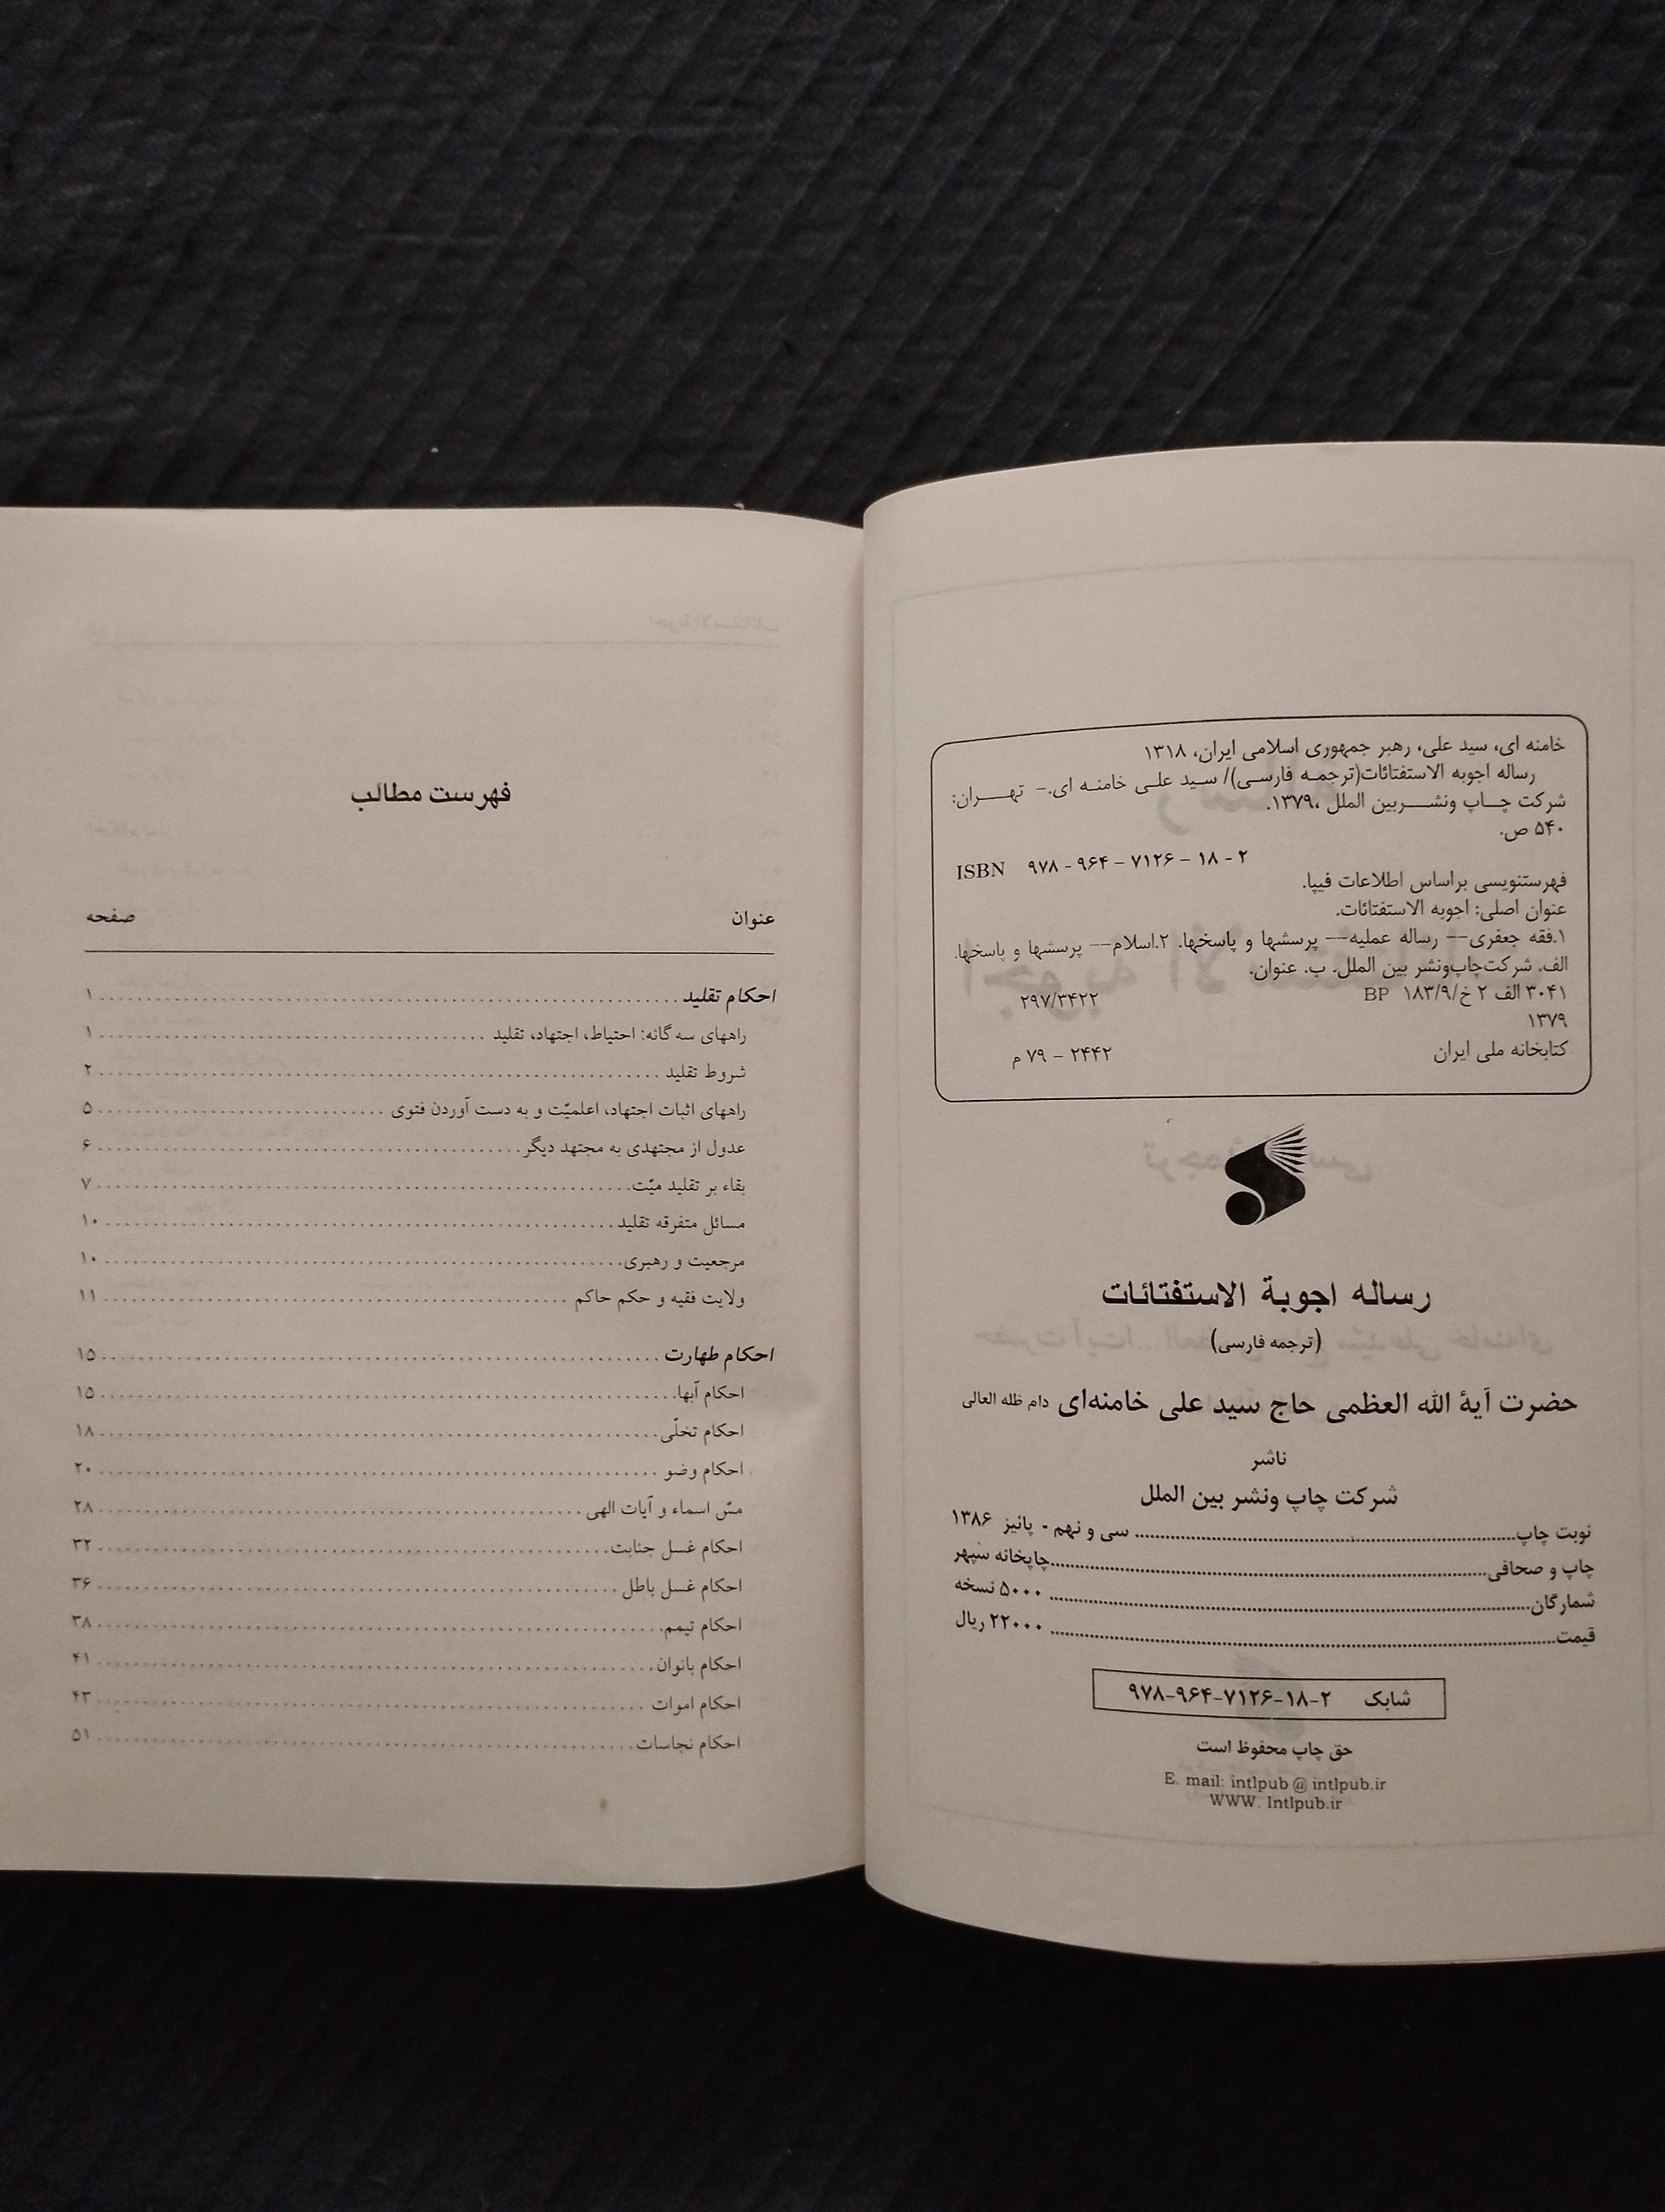 خامنه ای، سید علی، رهبر جمهوری اسلامی ایران، ۱۳۱۸
رساله اجوبه الاستفتائات(ترجمه فارسی)/ سید علی خامنه ای.- تهران:
شرکت چاپ ونشربین الملل ،۱۳۷۹.
۵۴۰ ص.
ISBN ۹۷۸ - ۹۶۴ - ۷۱۲۶ - ۱۸ - ۲
فهرستنویسی براساس اطلاعات فیپا.
عنوان اصلی: اجوبه الاستفتائات.
۱.فقه جعفری-- رساله عملیه-- پرسشها و پاسخها. ۲.اسلام-- پرسشها و پاسخها.
الف. شرکت‌چاپ‌ونشر بین الملل. ب. عنوان.
۳۰۴۱ الف ۲ خ/۱۸۳/۹ BP ۲۹۷/۳۴۲۲
۱۳۷۹
کتابخانه ملی ایران ۲۴۴۲ - ۷۹ م
رساله اجوبة الاستفتائات
(ترجمه فارسی)
حضرت آیة الله العظمی حاج سید علی خامنه‌ای دام ظله العالی
ناشر
شرکت چاپ ونشر بین الملل
نوبت چاپ........ سی و نهم - پائیز ۱۳۸۶
چاپ و صحافی........چاپخانه سپهر
شمارگان........ ۵۰۰۰ نسخه
قیمت........ ۲۲۰۰۰ ریال
شابک ۹۷۸-۹۶۴-۷۱۲۶-۱۸-۲
حق چاپ محفوظ است
E. mail: intlpub @ intlpub.ir
WWW. Intlpub.ir
فهرست مطالب
عنوان صفحه
احکام تقلید........ ۱
راههای سه گانه: احتیاط، اجتهاد، تقلید........ ۱
شروط تقلید........ ۲
راههای اثبات اجتهاد، اعلمیّت و به دست آوردن فتوی........ ۵
عدول از مجتهدی به مجتهد دیگر........ ۶
بقاء بر تقلید میّت........ ۷
مسائل متفرقه تقلید........ ۱۰
مرجعیت و رهبری........ ۱۰
ولایت فقیه و حکم حاکم........ ۱۱
احکام طهارت........ ۱۵
احکام آبها........ ۱۵
احکام تخلّی........ ۱۸
احکام وضو........ ۲۰
مسّ اسماء و آیات الهی........ ۲۸
احکام غسل جنابت........ ۳۲
احکام غسل باطل........ ۳۶
احکام تیمم........ ۳۸
احکام بانوان........ ۴۱
احکام اموات........ ۴۳
احکام نجاسات........ ۵۱